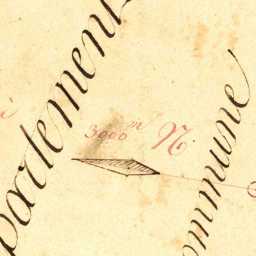 partement
3000m N.
ommune